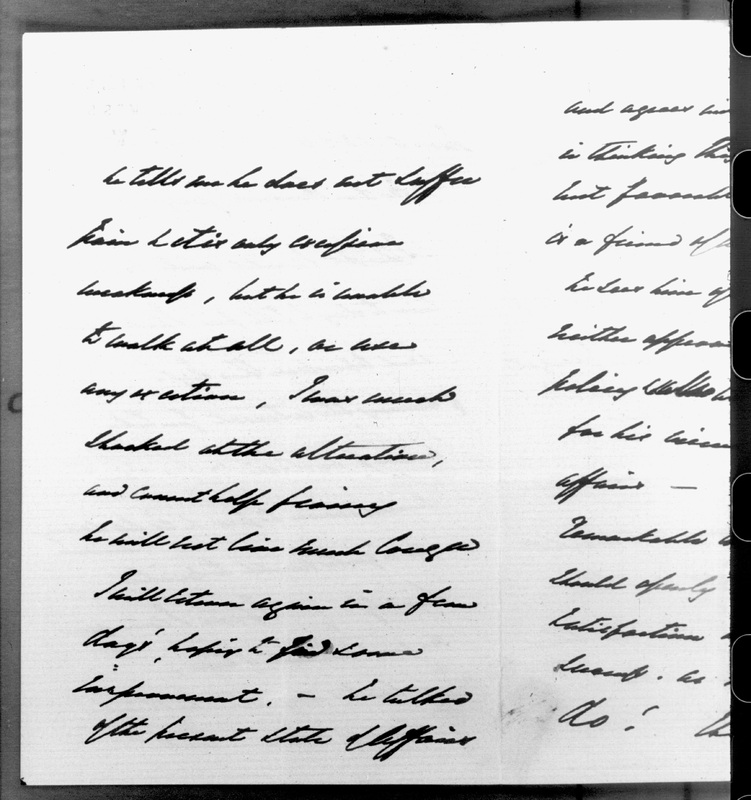 he tells me he does not suffer
pain & it is only excessive
weakness, but he is unable
to walk at all, or use
any exertion, I was much
shocked at the alteration,
and cannot help fearing
he will not live much longer
I will return again in a few
days', hoping to find some
improvement. — he talked
of the present state of Affairs
and agrees
in thinking this
but favorable
is a friend of
he sees him
neither
policy
for his
affairs —
Remarkable
should openly
satisfaction
success. as
do!